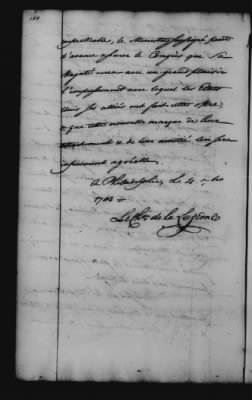 impraticable, le Ministre soussigné peut
d'avance assurer le Congrès que Sa
Majesté verra avec un grand plaisir
l'empressement avec lequel les Etats
Unis ses alliés ont fait cette offre;
et que cette nouvelle marque de leur
attachement et de leur amitié lui sera
infiniment agréable.
A Philadelphie, le 4
1782
Le Chr de la Luzerne